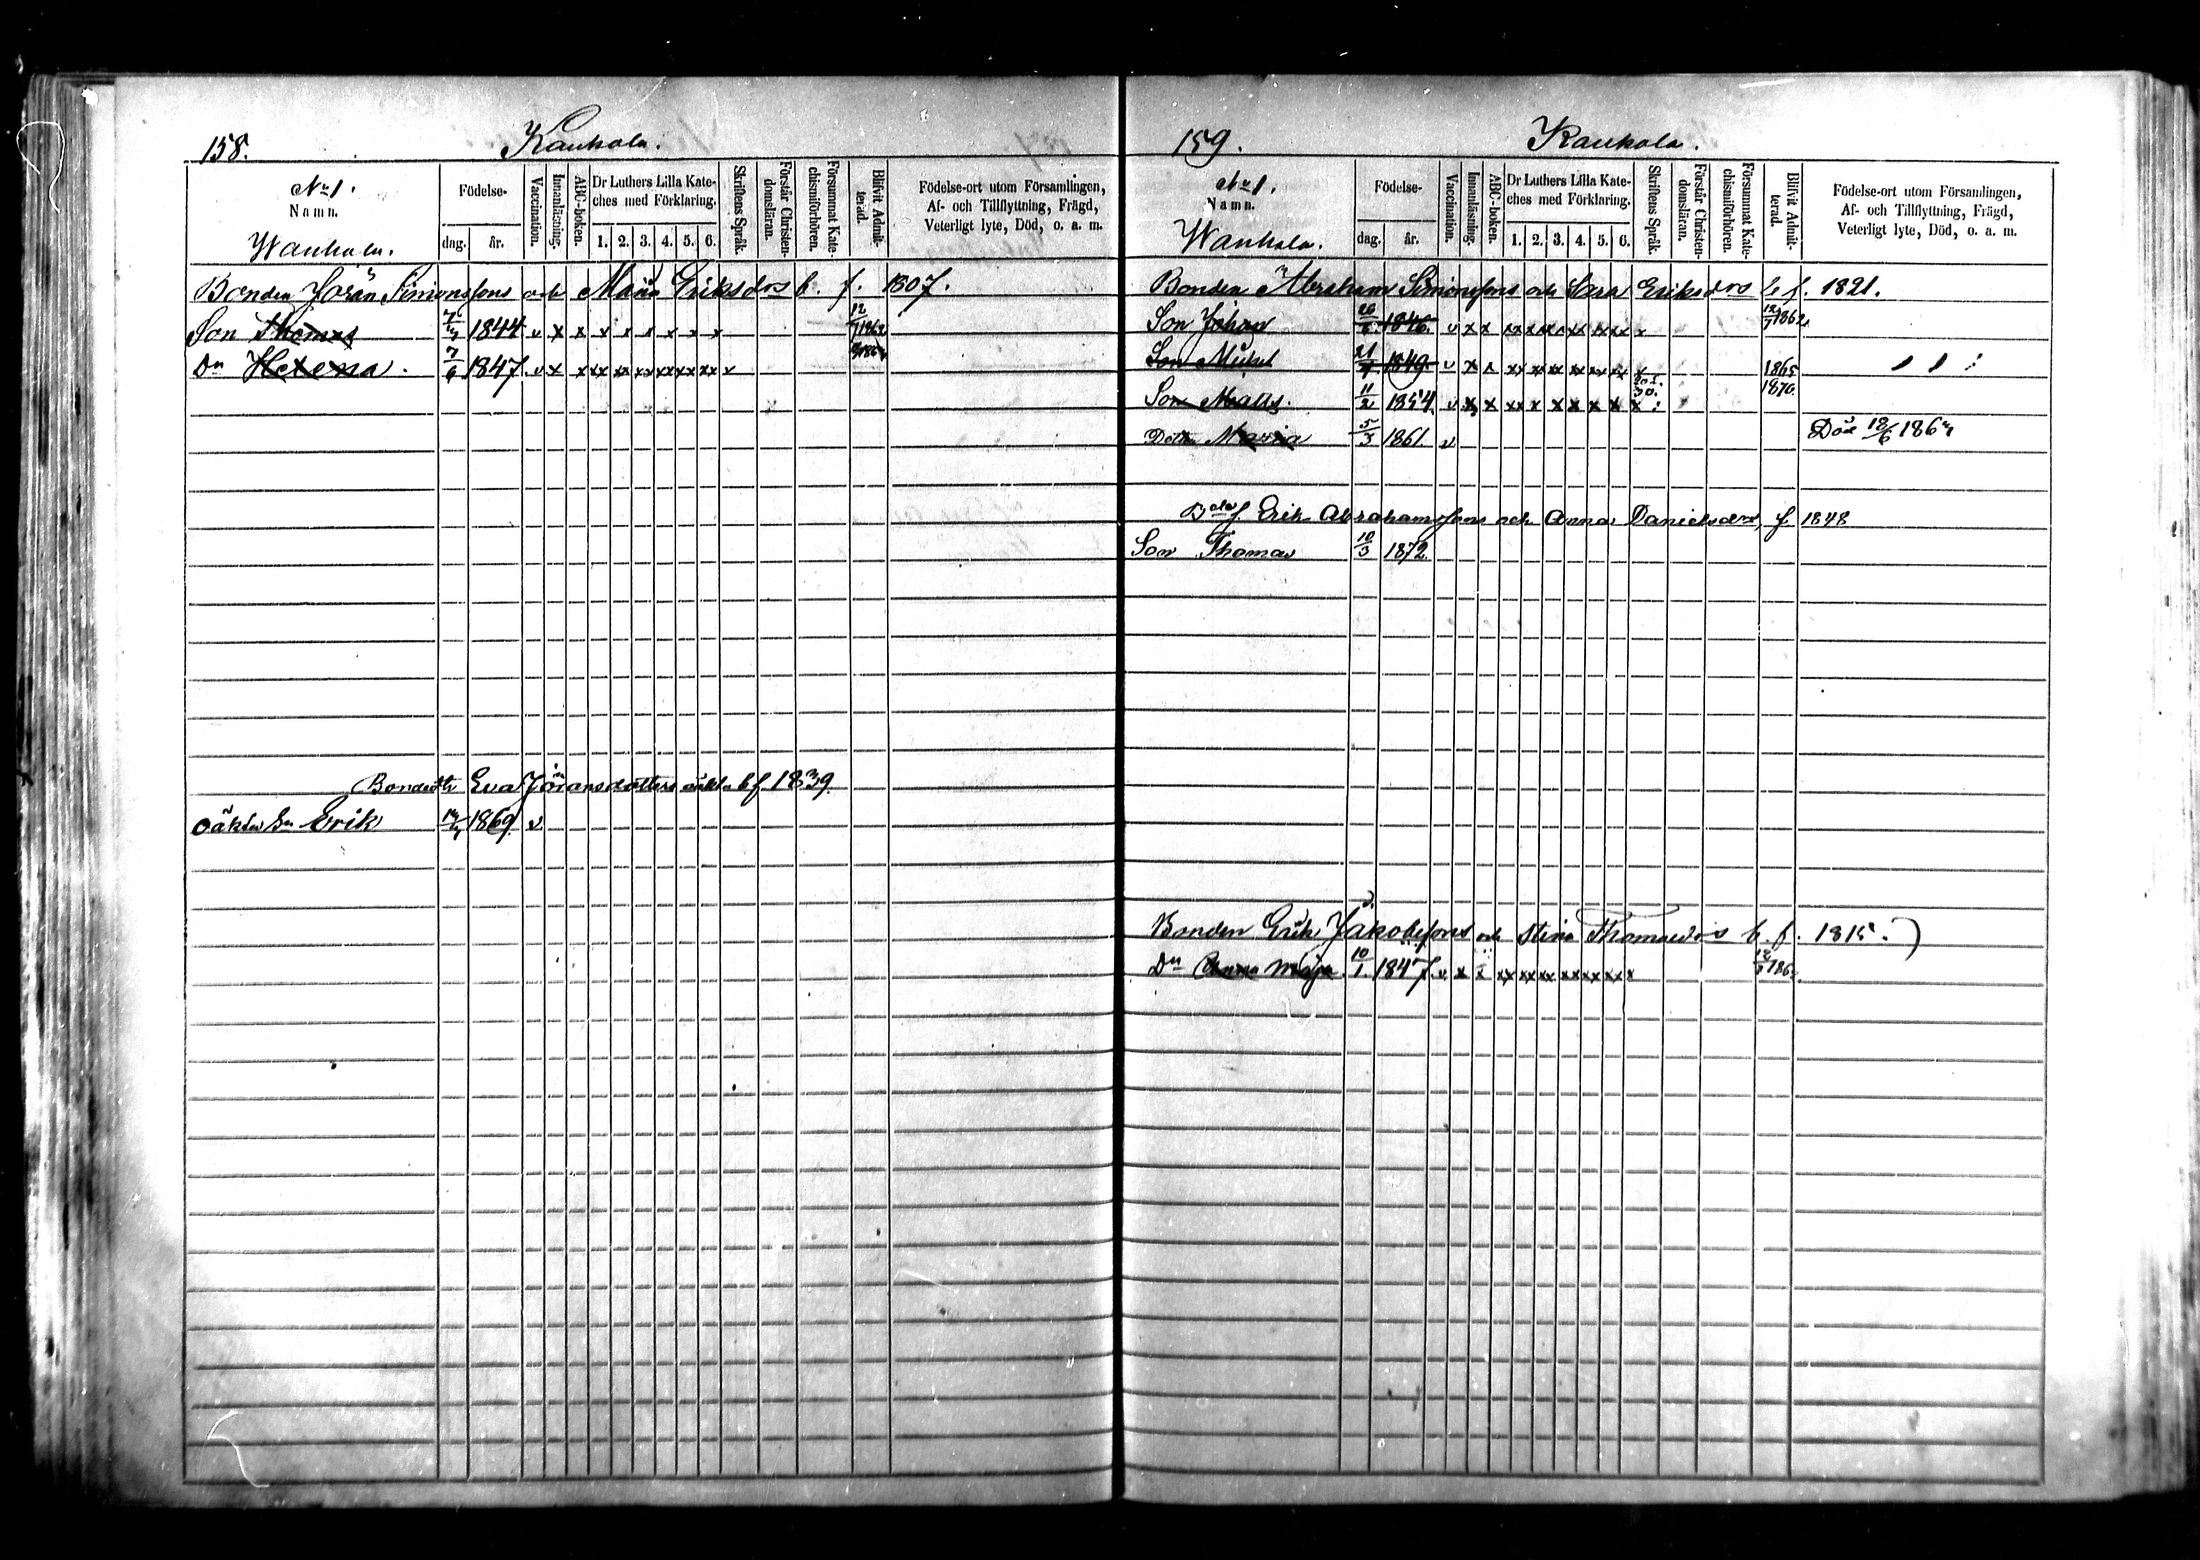 158. Kauhola.
No 1.
Namn.
Wanhala.
Födelse-
dag. år.
Vaccination.
Innanläsning.
ABC-boken.
Dr Luthers Lilla Kate-
ches med Förklaring.
1. 2. 3. 4. 5. 6.
Skriftens Språk.
Förstår Christen-
domsläran.
Försummat Kate-
chismiförhören.
Blifvit Admit-
terad.
Födelse-ort utom Församlingen,
Af- och Tillflyttning, Frägd,
Veterligt lyte, Död, o. a. m.
Bonden Jöran Simonssons och Maria Eriksdrs b. f. 1807.
Son Thomas 1844 v x x x x x x x x 12/7 1862
Dn Helena. 7/6 1847. v x x xx xx xx xx xx xx x
Bondedtr Eva Jöransdotters oäkta b f. 1839.
oäkta Sn Erik 1869. v
159. Kauhola.
No 1.
Namn.
Wanhala.
Födelse-
dag. år.
Vaccination.
Innanläsning.
ABC-boken.
Dr Luthers Lilla Kate-
ches med Förklaring.
1. 2. 3. 4. 5. 6.
Skriftens Språk.
Förstår Christen-
domsläran.
Försummat Kate-
chismiförhören.
Blifvit Admit-
terad.
Födelse-ort utom Församlingen,
Af- och Tillflyttning, Frägd,
Veterligt lyte, Död, o. a. m.
Bonden Abraham Simonssons och Sara Eriksdrs b. f. 1821.
Son Johan 1846. v x x xx xx xx xx xx xx x 12/7 1862
Son Mickel 1849 v x x xx xx xx xx xx xx x 1865
Son Matts. 11/2 1854 v x x xx x x x x x x 1870.
Dottr Maria 5/3 1861 v Död 18/6 1867
Erik Abrahamssons och Anna Danielsdrs f. 1848
Son Thomas 10/3 1872
Bonden Erik Jakobssons och Stina Thomasdrs b. f. 1815.)
Dn Anna Maja 10/1 1847. v x x xx xx xx xx xx xx x